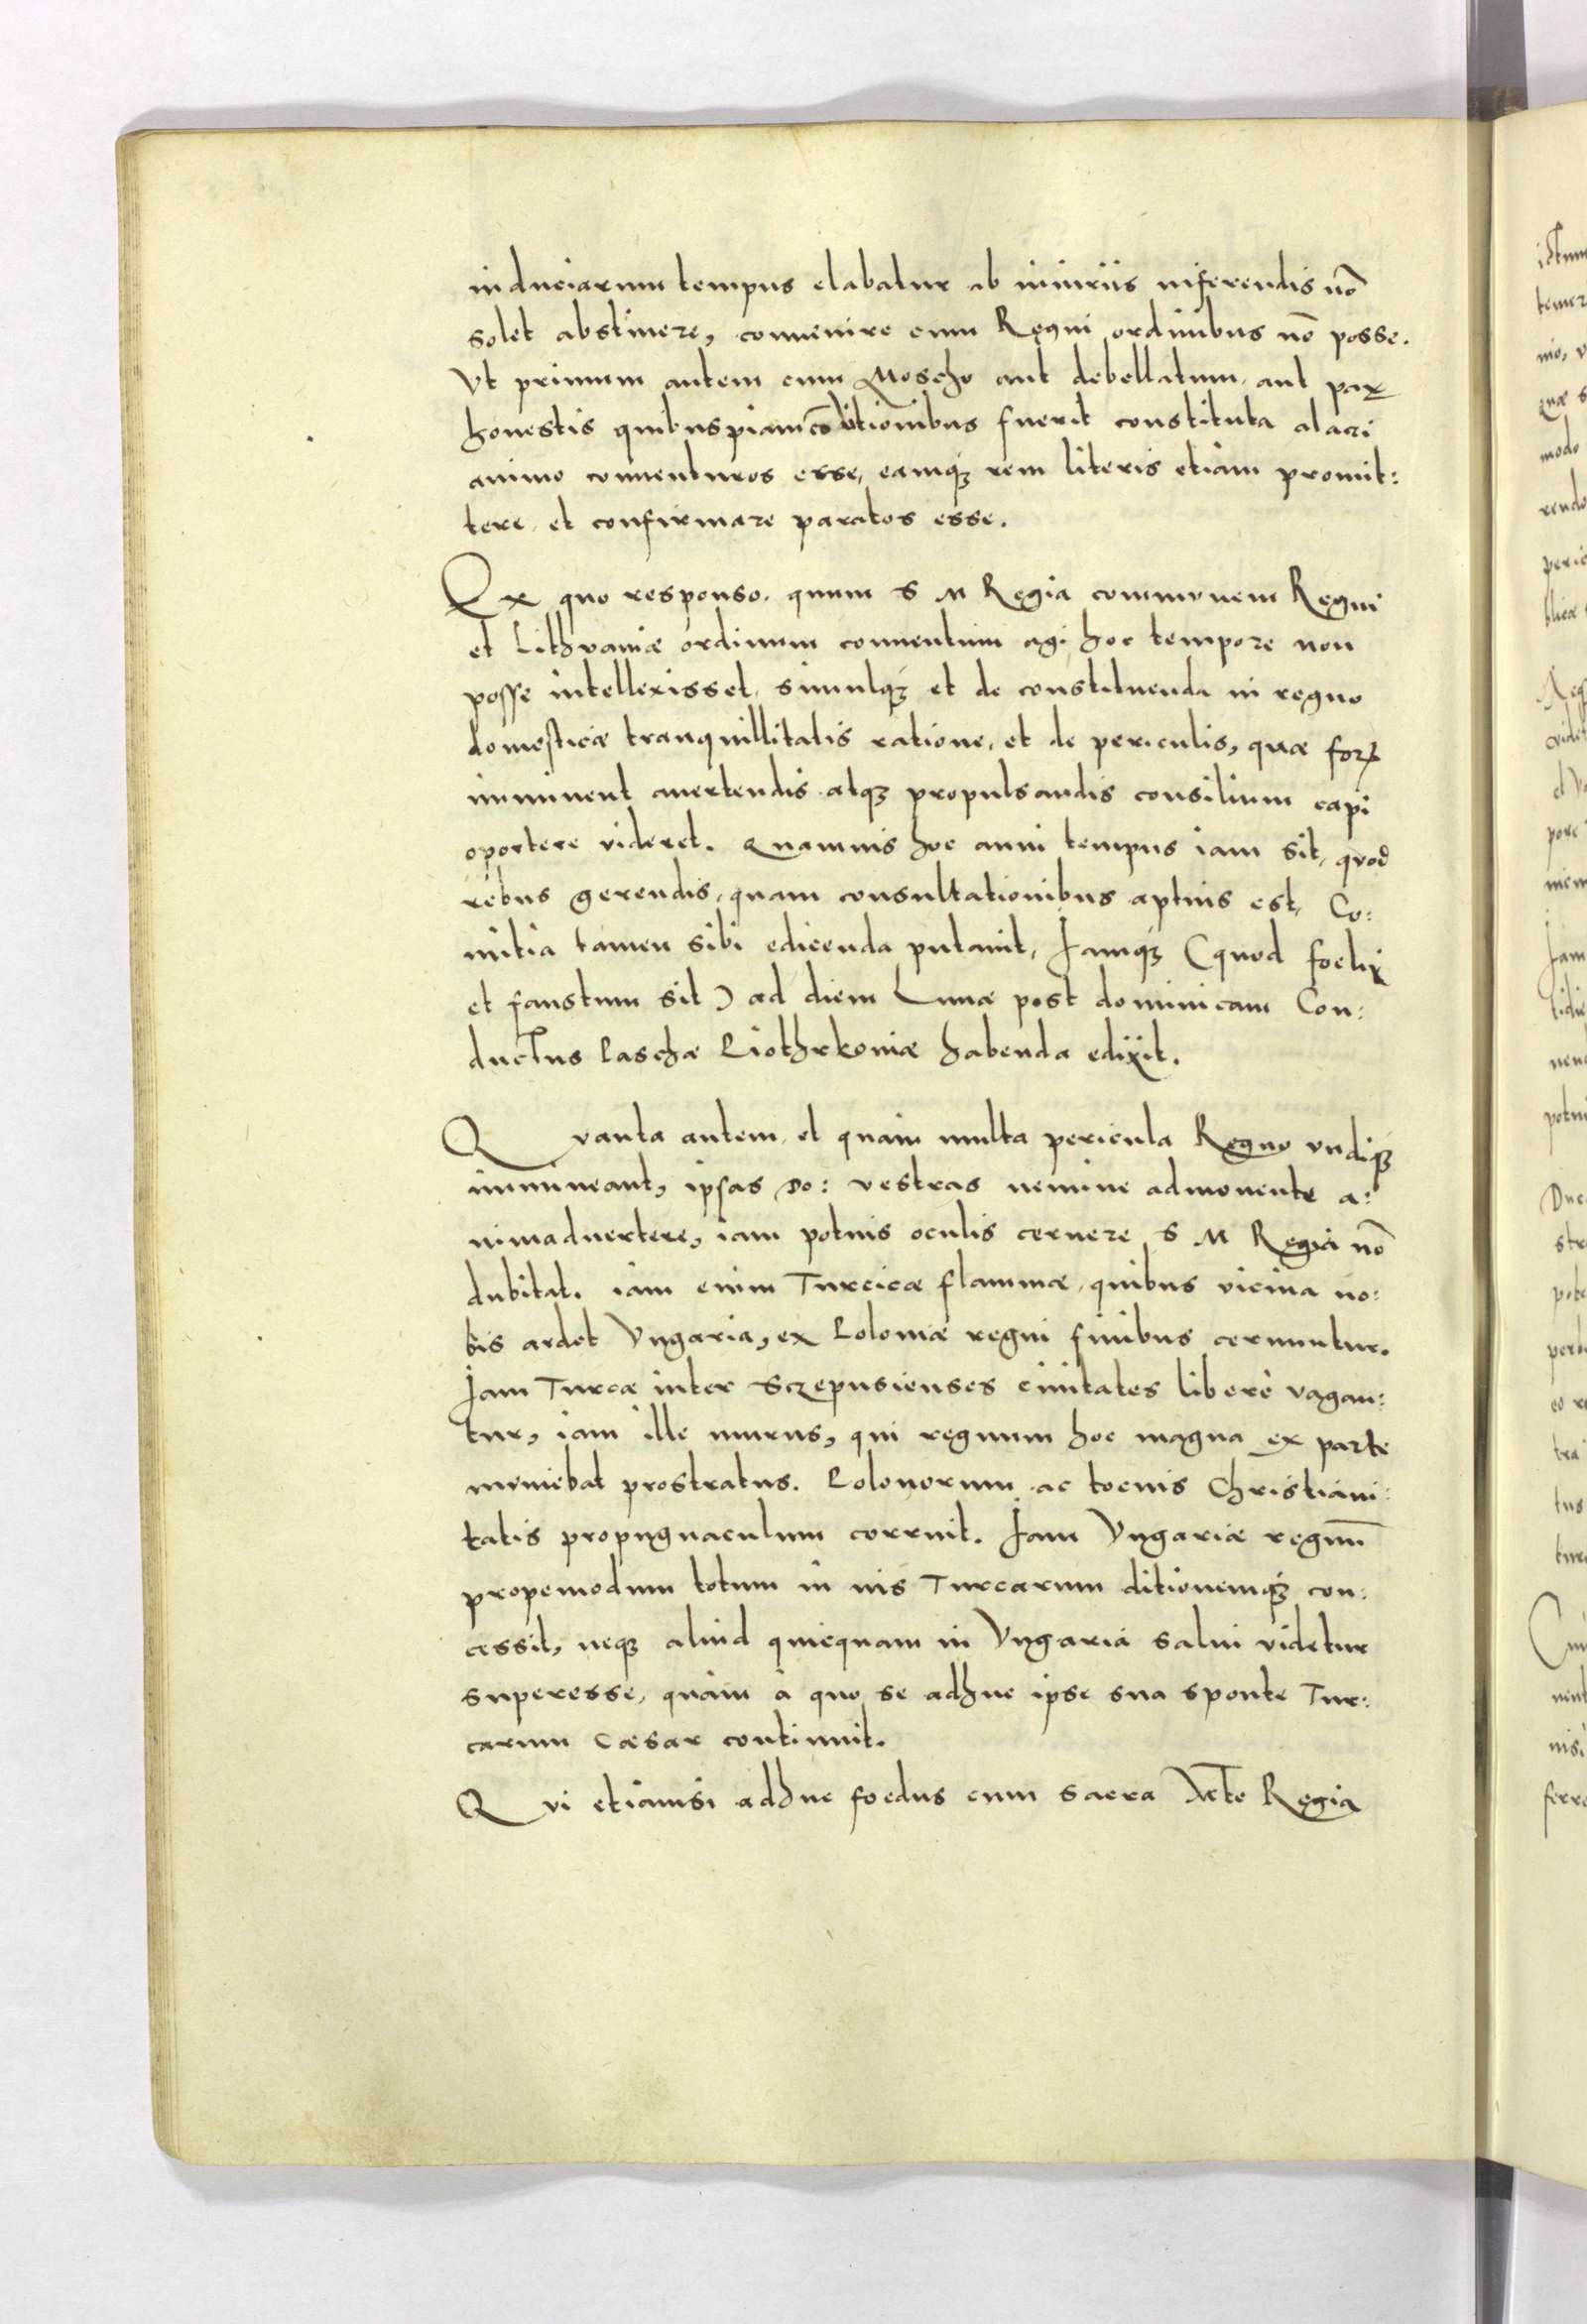 induciarum tempus elabatur ab iniuriis inferendis nō
solet abstinere, conuenire cum Regni ordinibus nō posse.
Vt primum autem cum Moscho aut debellatum, aut pax
honestis quibuspiam cōditionibus fuerit constituta alacri
animo conuenturos esse, eamqꝫ rem literis etiam promit:
tere, et confirmare paratos esse.
Ex quo responso, quum S M Regia communem Regni
et Lithvaniæ ordinum conuentum agi hoc tempore non
posse intellexisset, simulqꝫ et de constituenda in regno
domesticæ tranquillitatis ratione, et de periculis, quæ foris
imminent auertendis atqꝫ propulsandis consilium capi
oportere videret. Quamuis hoc anni tempus iam sit, quod
rebus gerendis, quam consultationibus aptius est, Co:
mitia tamen sibi edicenda putauit, Jamqꝫ (quod foelix
et faustum sit) ad diem Lunæ post dominicam Con:
ductus Paschæ Piothrkoviæ habenda edixit.
Qvanta autem, et quàm multa pericula Regno vndiqꝫ
immineant, ipsas Do: vestras nemine admonente a:
nimaduertere, iam potius oculis cernere S M Regia nō
dubitat. iam enim Turcicæ flammæ, quibus vicina no:
bis ardet Vngaria, ex Poloniæ regni finibus cernuntur.
Jam Turcæ inter Sczepusienses ciuitates liberè vagan:
tur, iam ille murus, qui regnum hoc magna ex parte
muniebat prostratus. Polonorum ac tocius Christiani:
tatis propugnaculum corruit. Jam Vngariæ regnū
propemodum totum in ius Turcarum ditionemqꝫ con:
cessit, neqꝫ aliud quicquam in Vngaria salui videtur
superesse, quàm à quo se adhuc ipse sua sponte Tur:
carum Cæsar continuit.
Qvi etiamsi adhuc foedus cum sacra Mte Regia